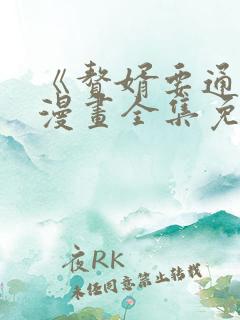 《贅婿要通
漫畫全集免
夜RK
未经同意禁止转载